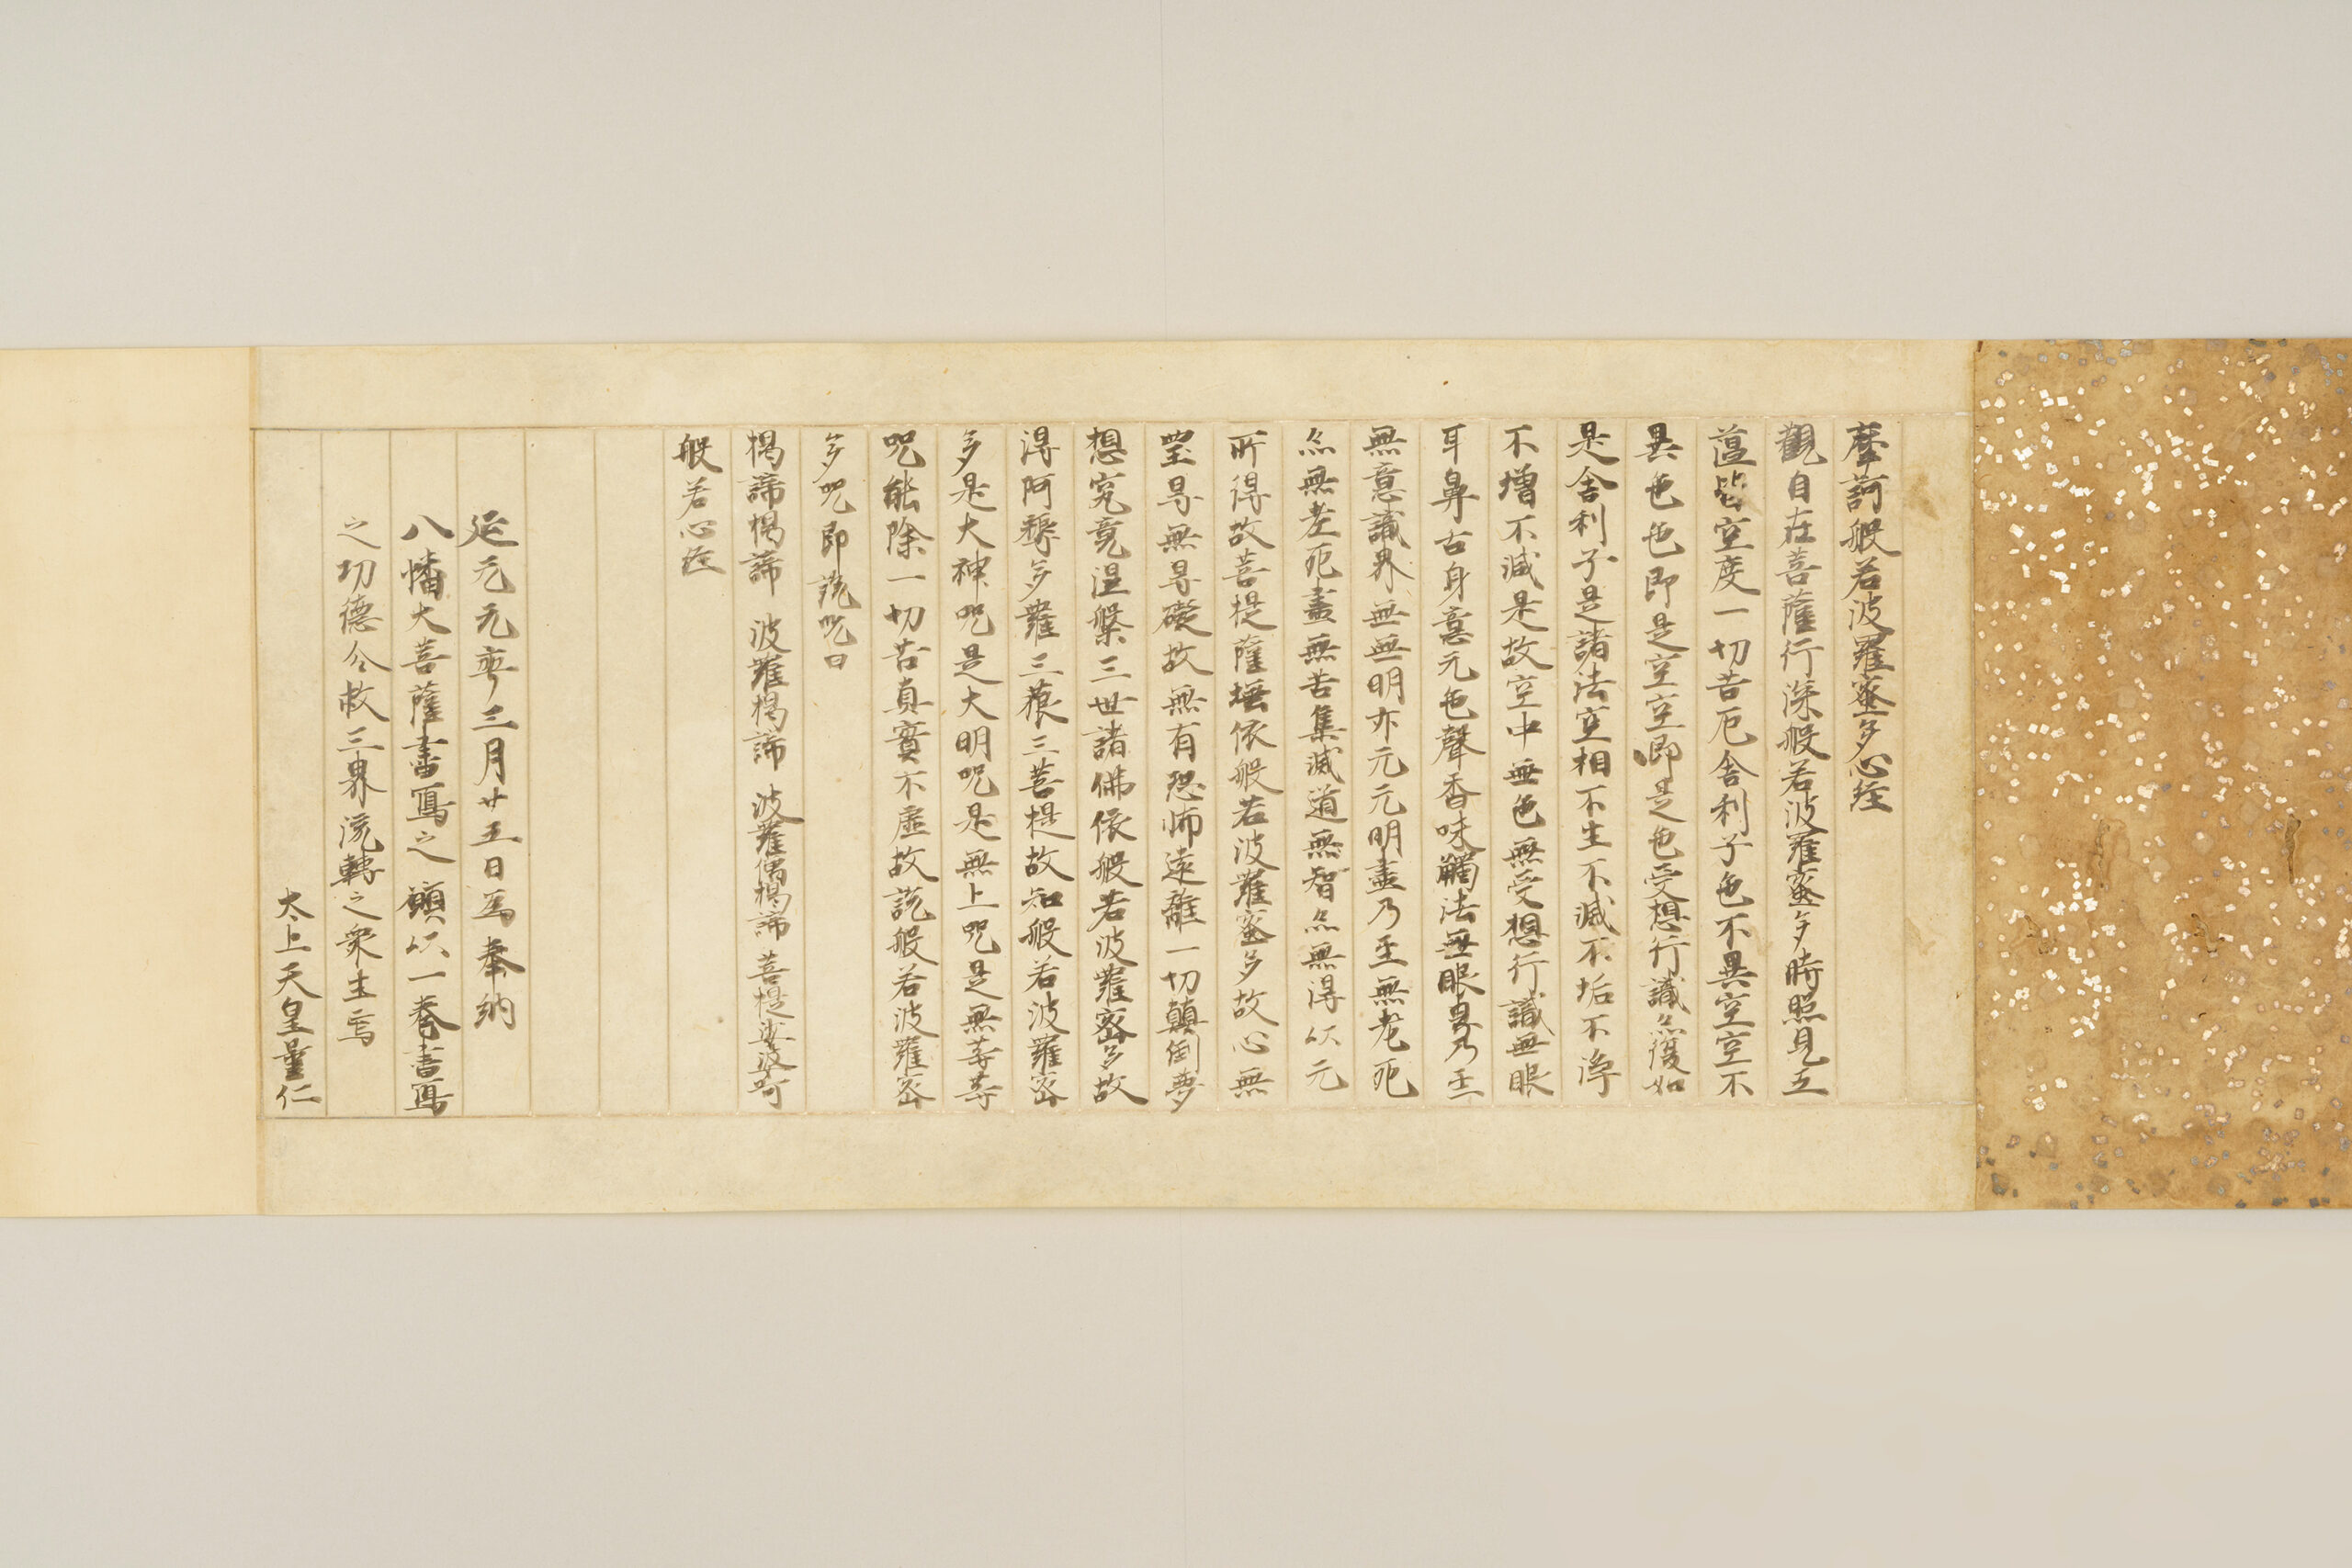 摩訶般若波羅蜜多心経
觀自在菩薩行深般若波羅蜜多時照見五
蘊皆空度一切苦厄舎利子色不異空空不
異色色即是空空即是色受想行識亦復如
是舎利子是諸法空相不生不滅不垢不浄
不増不滅是故空中無色無受想行識無眼
耳鼻舌身意元色聲香味觸法無眼界乃至
無意識界無無明亦元元明盡乃至無老死
亦無老死盡無苦集滅道無智亦無得以元
所得故菩提薩埵依般若波羅蜜多故心無
罣导無导礙故無有恐怖遠離一切顛倒夢
想究竟涅槃三世諸佛依般若波羅蜜多故
得阿耨多羅三藐三菩提故知般若波羅蜜
多是大神呪是大明呪是無上呪是無等等
呪能除一切苦真實不虚故説般若波羅蜜
多呪即説呪曰
揭諦揭諦 波羅揭諦 波羅僧揭諦 菩提娑婆訶
般若心経
延元元年三月廿五日為奉納
八幡大菩薩書寫之願以一巻書寫
之功德令救三界流轉之衆生焉
太上天皇量仁